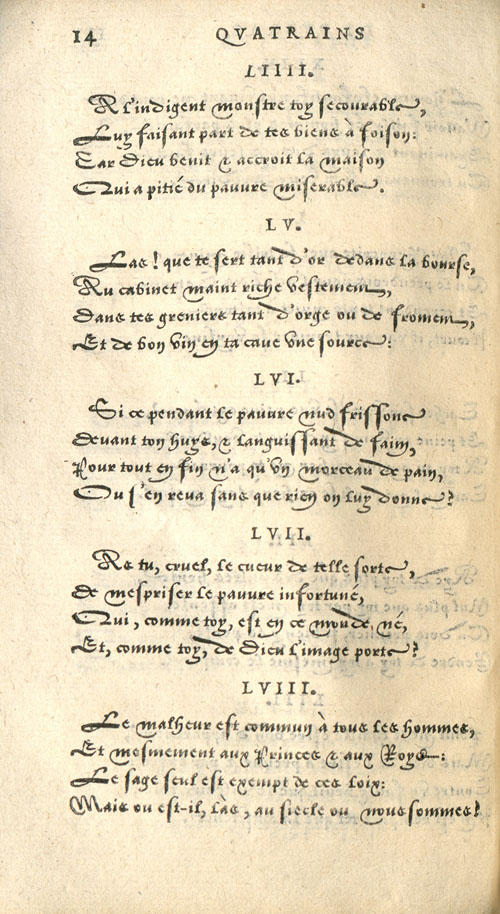 14 QVATRAINS
LIIII.
A l'indigent monstre toy secourable,
Luy faisant part de tes biens à foison:
Car Dieu benit & accroit la maison
Qui a pitié du pauure miserable.
LV.
Las! que te sert tant d'or dedans la bourse,
Au cabinet maint riche vestement,
Dans tes greniers tant d'orge ou de froment,
Et de bon vin en ta caue vne source:
LVI.
Si ce pendant le pauure nud frissonne
Deuant ton huys, & languissant de faim,
Pour tout en fin n'a qu'vn morceau de pain,
Ou s'en reva sans que rien on luy donne?
LVII.
As tu, cruel, le cueur de telle sorte,
De mespriser le pauure infortuné,
Qui, comme toy, est en ce monde né,
Et, comme toy, de Dieu l'image porte?
LVIII.
Le malheur est commun à tous les hommes,
Et mesmement aux Princes & aux Roys:
Le sage seul est exempt de ces loix:
Mais ou est-il, las, au siecle ou nous sommes?